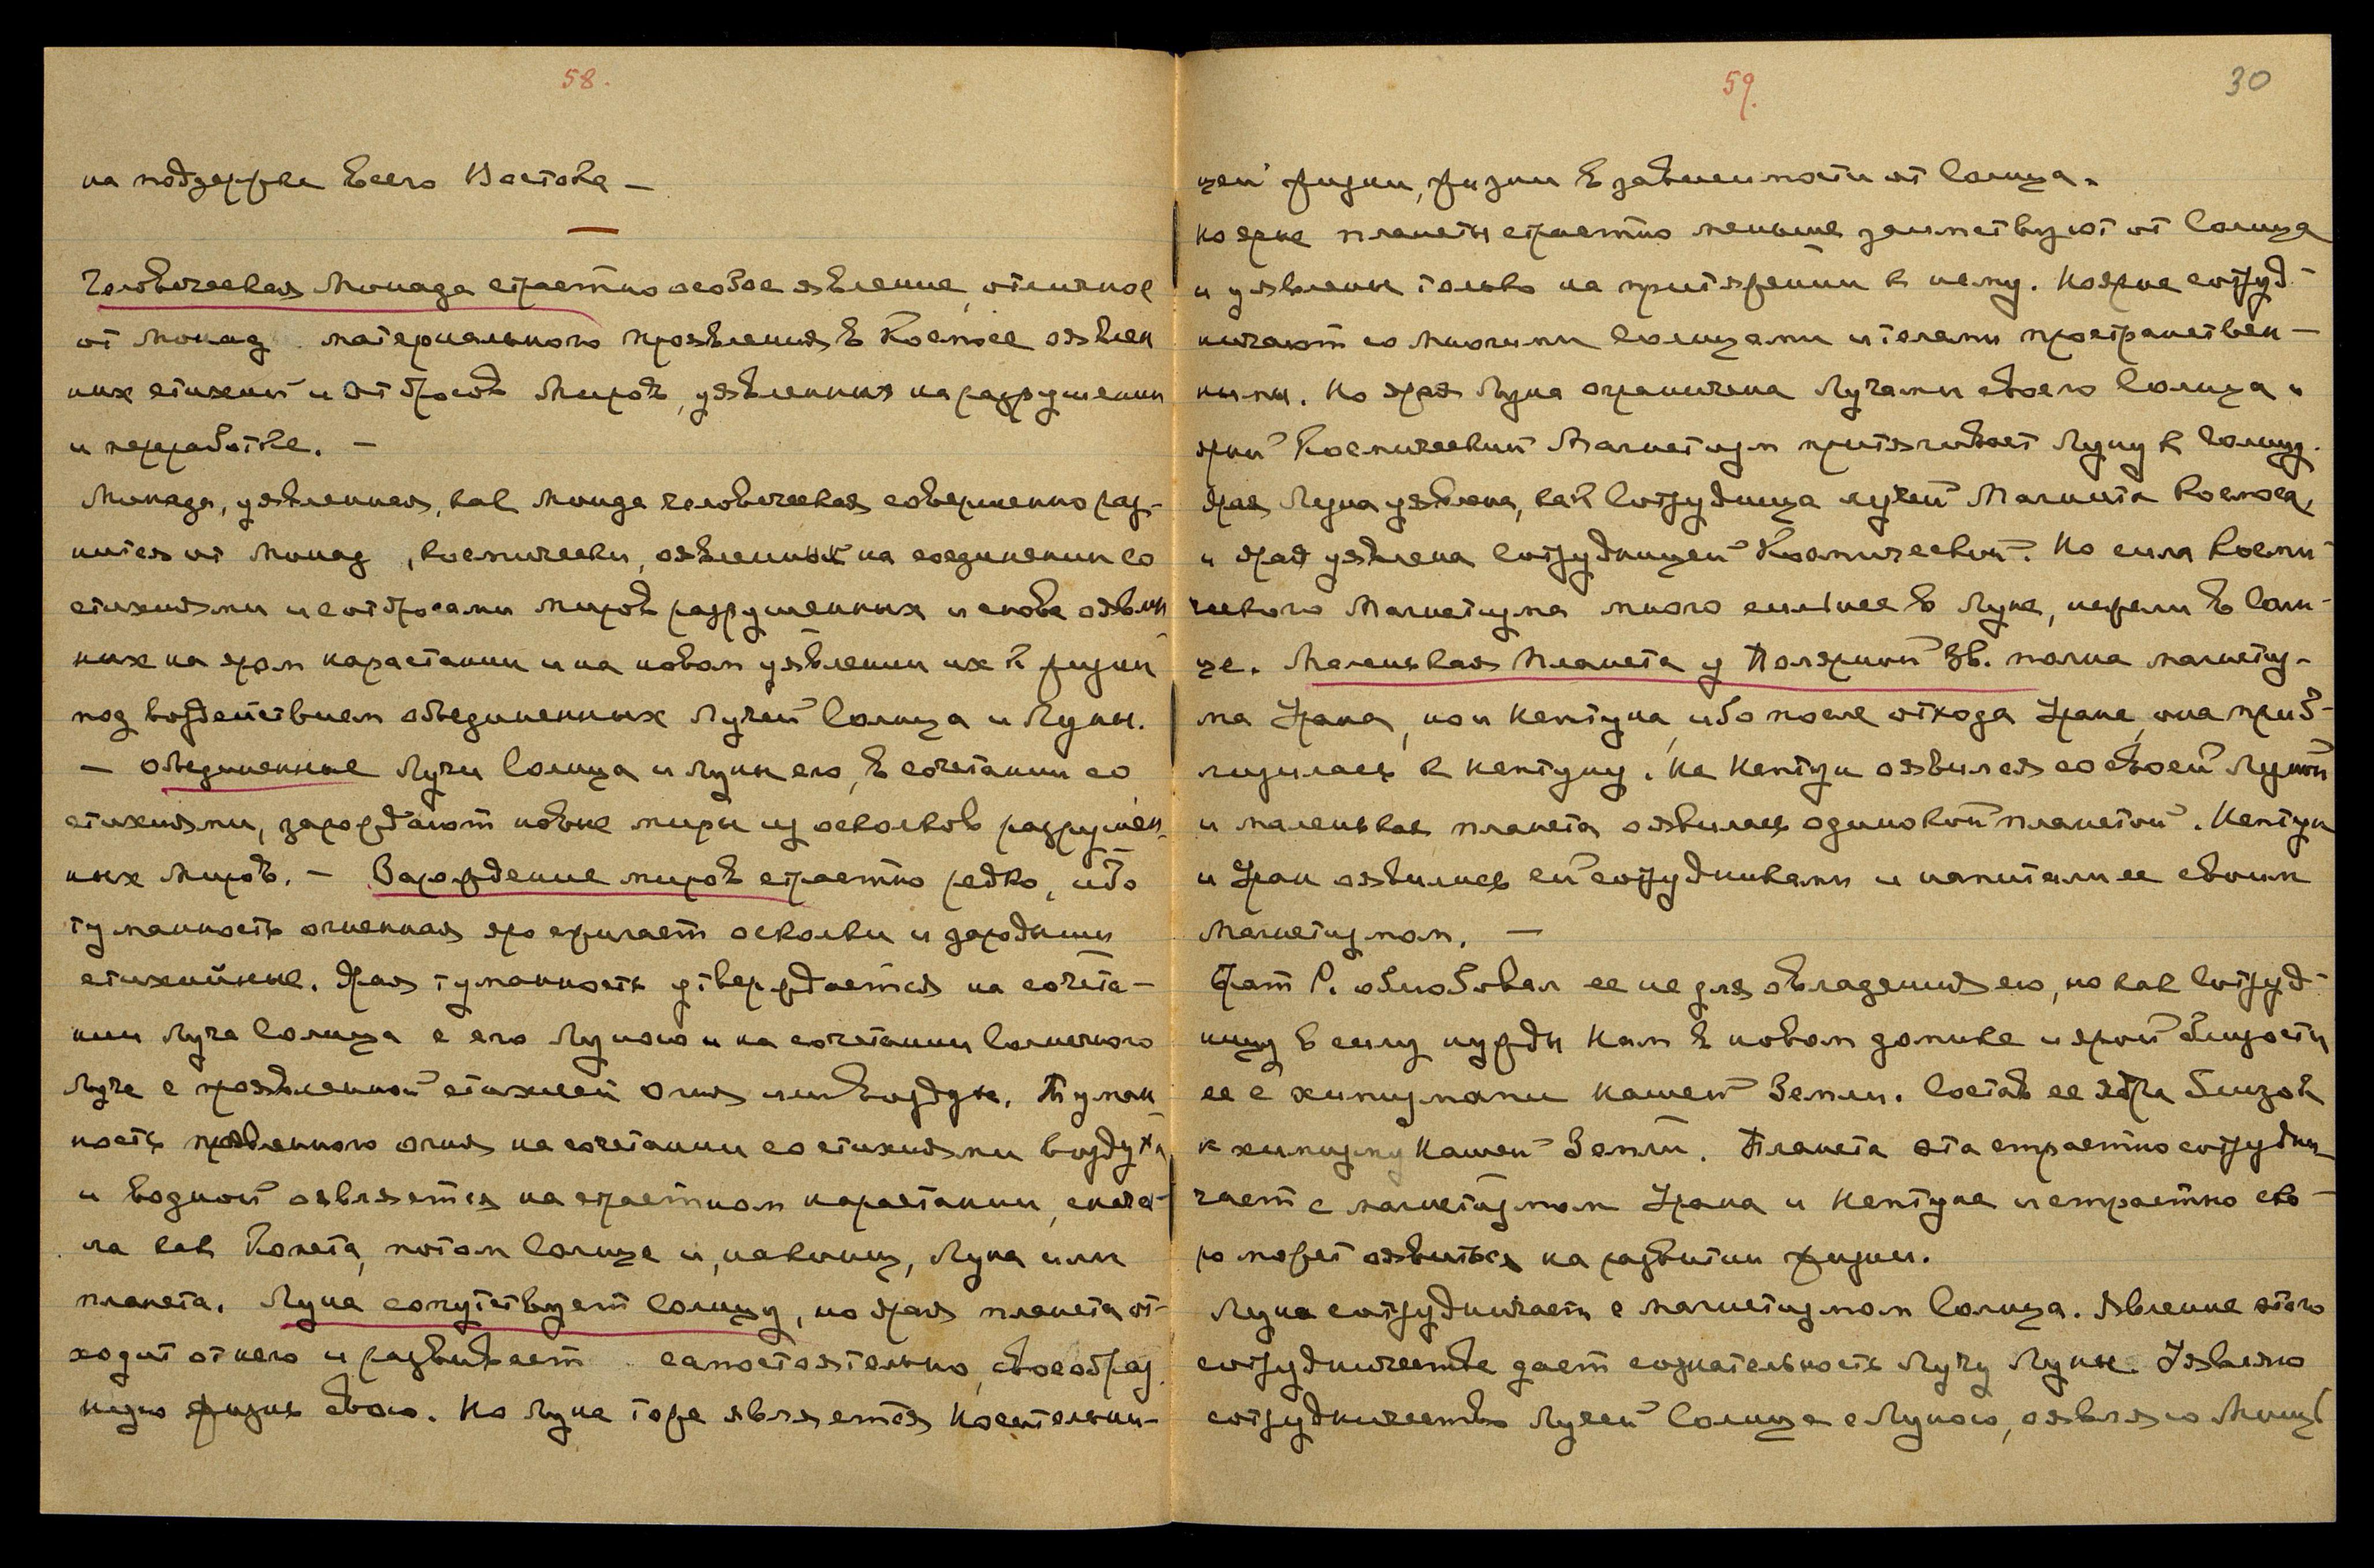 58.
на поддержке всего Востока —
Человеческая Монада страстно особое явление, отличное
от Монад материального проявления в Космосе оявлен
ных стихий и отбросов Миров, уявленных на разрушении
и переработке. —
Монада, уявленная, как Монада человеческая совершенно раз-
нится от Монад, космически, оявленных на соединении со
стихиями и с отбросами миров разрушенных и снова оявлен
ных на яром нарастании и на новом уявлении их к жизни
под воздействием объединенных Лучей Солнца и Луны.
— Объединенные Лучи Солнца и Луны его, в сочетании со
стихиями, зарождают новые миры из осколков разрушен-
ных Миров. — Зарождение миров страстно редко, ибо
туманность огненная яро сжигает осколки и зародыши
стихийные. Ярая туманность утверждается на сочета-
нии Луча Солнца с его Луною и на сочетании Солнечного
Луча с проявленной стихией Огня или Воздуха. Туман
ность проявленного огня на сочетании со стихиями воздуха
и водной оявляется на страстном нарастании, снача-
ла как Комета, потом Солнце и, наконец, Луна или
планета. Луна сопутствует Солнцу, но ярая планета от-
ходит от него и развивает самостоятельно, своеобраз
ную жизнь свою. Но Луна тоже является Носительни-
59.
30
цей жизни, жизни в зависимости от Солнца.
Но ярые планеты страстно меньше заимствуют от Солнца
и уявлены только на притяжении к нему. Но ярые сотруд-
ничают со многими солнцами и телами пространствен-
ными. Но ярая Луна ограничена Лучами своего Солнца и
ярый Космический Магнетизм притягивает Луну к Солнцу.
Ярая Луна уявлена, как Сотрудница лучей Магнита Космоса,
и ярая уявлена Сотрудницей Космической. Но сила Косми-
ческого Магнетизма много сильнее в Луне, нежели в Солн-
це. Маленькая Планета у Полярной Зв. полна магнетиз-
ма Урана, но и Нептуна, ибо после отхода Урана, она приб-
лизилась к Нептуну. Но Нептун оявился со своей Луной
и маленькая планета оявилась одинокой планетой. Нептун
и Уран оявились ей сотрудниками и напитали ее своим
магнетизмом. —
Брат Р. облюбовал ее не для овладения ею, но как Сотруд-
ницу в силу нужды Нам в новом домике и ярой близости
ее с химизмами нашей Земли. Состав ее ядра близок
к химизму нашей Земли. Планета эта страстно сотрудни-
чает с магнетизмом Урана и Нептуна и страстно ско-
ро может оявиться на развитии жизни.
Луна сотрудничает с магнетизмом Солнца. Явление этого
сотрудничества дает сознательность Лучу Луны. Уявляю
сотрудничество Лучей Солнца с Луною, оявляю Мощь